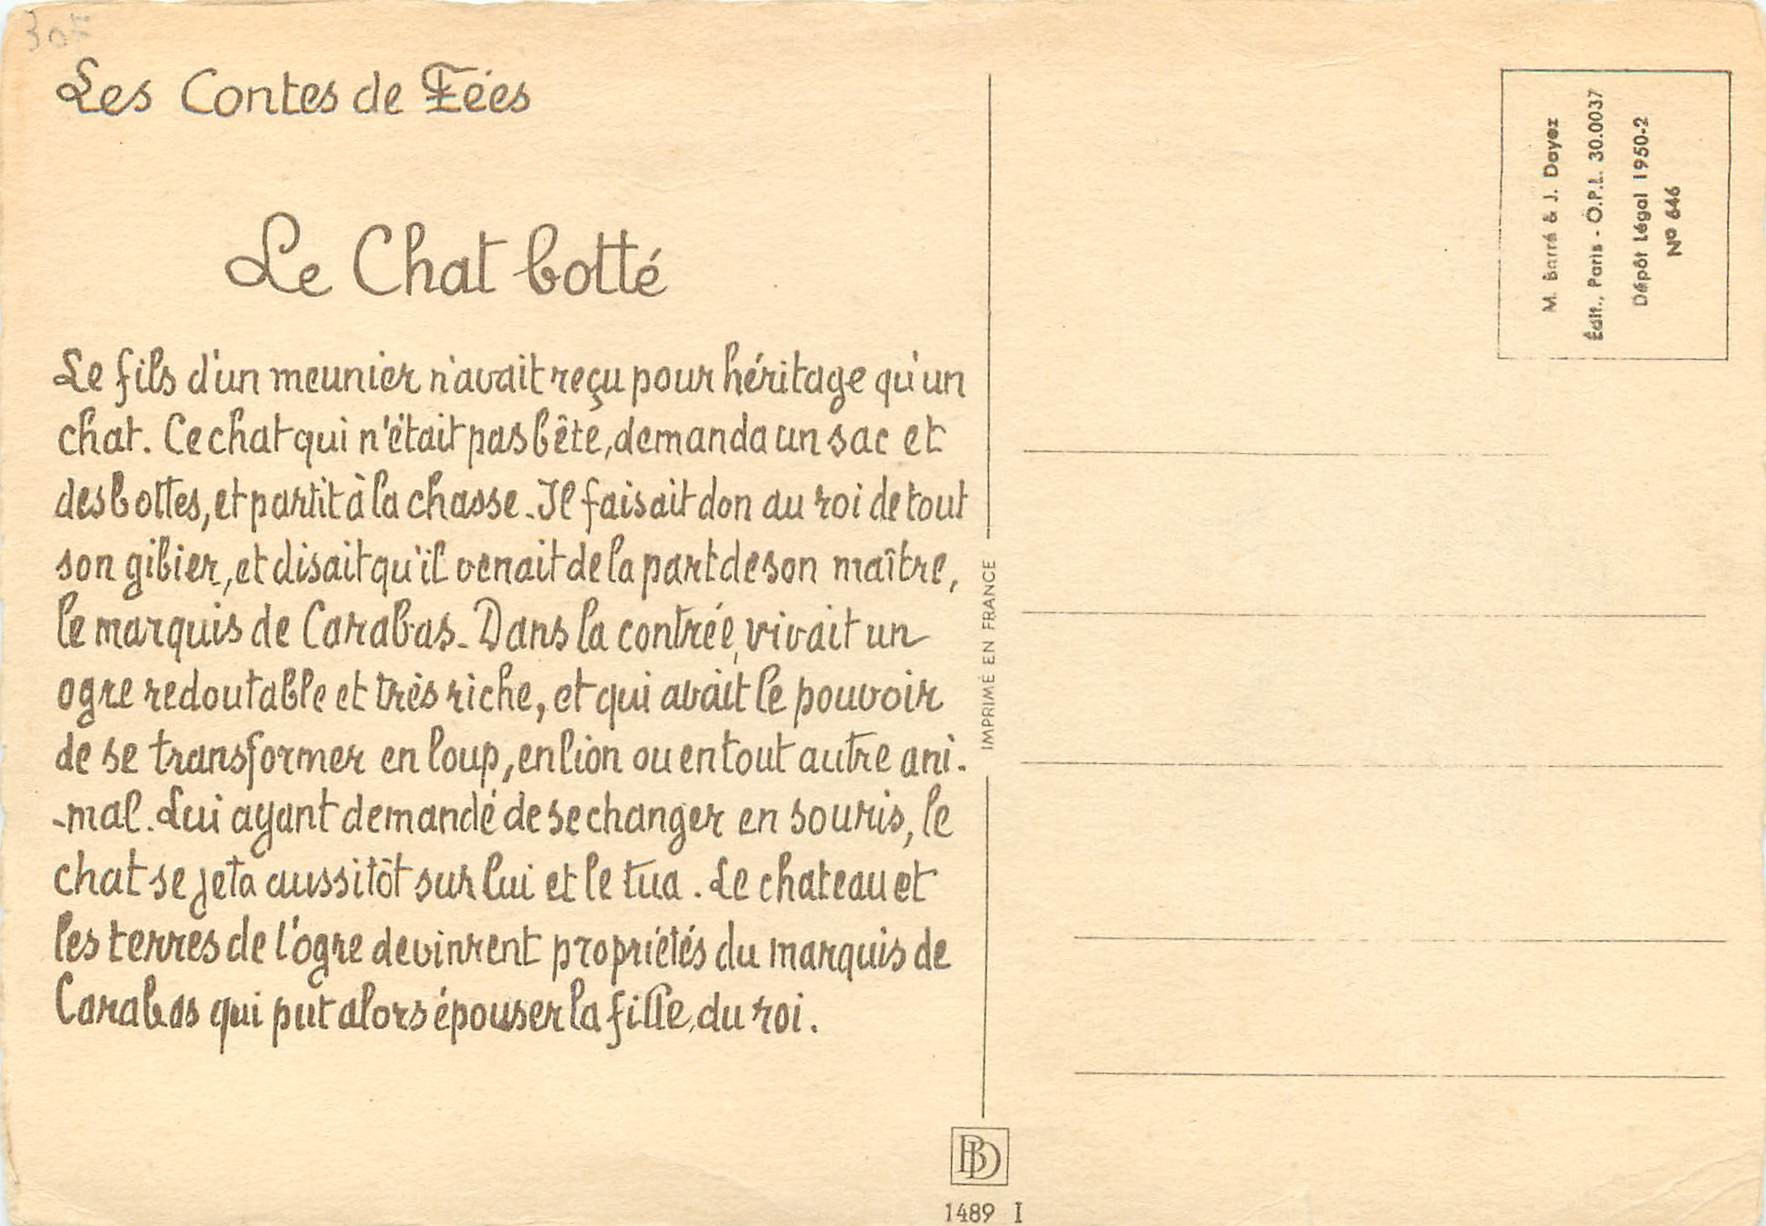 Les Contes de Fées
Le Chat botté
Le fils d'un meunier n'avait reçu pour héritage qu'un
chat. Ce chat qui n'était pas bête, demanda un sac et
des bottes, et partit à la chasse. Il faisait don au roi de tout
son gibier, et disait qu'il venait de la part de son maître,
le marquis de Carabas. Dans la contrée, vivait un
ogre redoutable et très riche, et qui avait le pouvoir
de se transformer en loup, en lion ou en tout autre ani-
-mal. Lui ayant demandé de se changer en souris, le
chat se jeta aussitôt sur lui et le tua. Le chateau et
les terres de l'ogre devinrent propriétés du marquis de
Carabas qui put alors épouser la fille du roi.
IMPRIMÉ EN FRANCE
BD
1489 I
M. Barré & J. Dayez
Édit., Paris - O.P.L. 30.0037
Dépôt Légal 1950-2
Nº 646